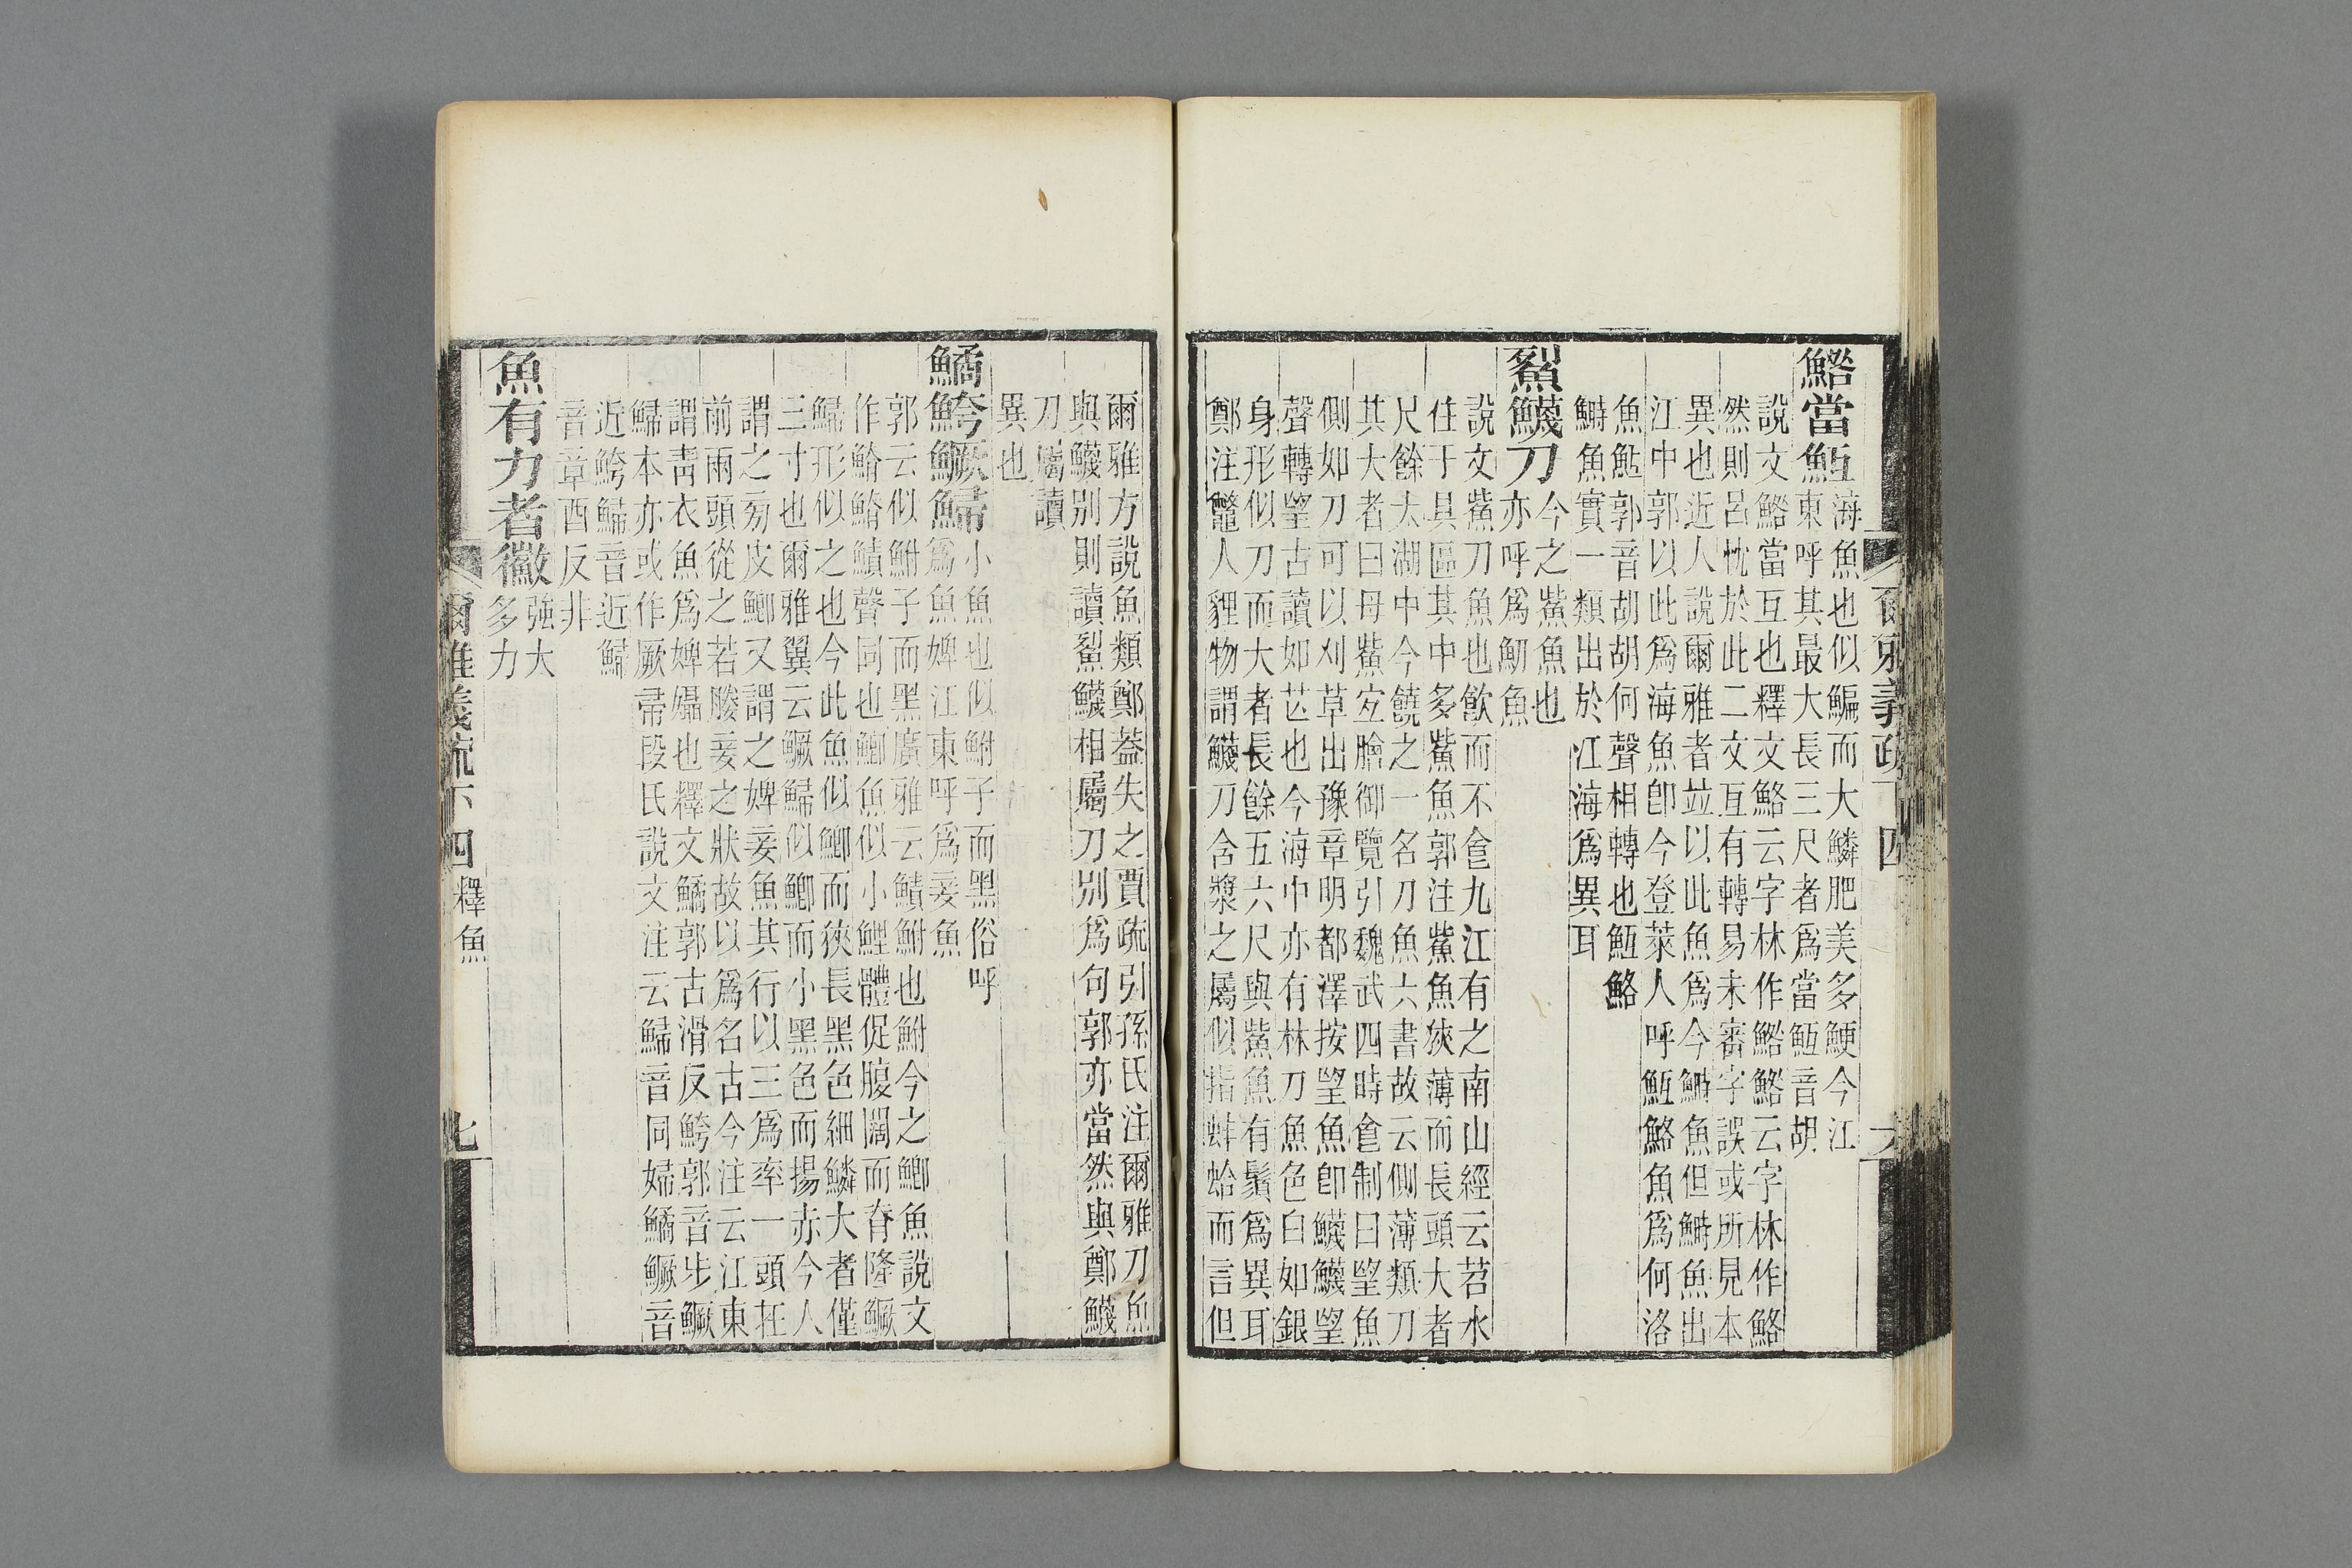 鯦當魱海魚也似鯿而大鱗肥美多鯁今江
東呼其最大長三尺者爲當魱音胡
說文鯦當互也釋文鮥云字林作鯦鮥云字林作鮥
然則呂忱於此二文互有轉易未審字誤或所見本
異也近人說爾雅者竝以此魚爲今鰣魚但鰣魚出
江中郭以此爲海魚卽今登萊人呼魱鮥魚爲何洛
魚魱郭音胡胡何聲相轉也魱鮥
鰣魚實一類出於江海爲異耳
鮤鱴刀今之鮆魚也
亦呼爲魛魚
說文鮆刀魚也飮而不食九江有之南山經云苕水
住于具區其中多鮆魚郭注鮆魚狹薄而長頭大者
尺餘太湖中今饒之一名刀魚六書故云側薄類刀
其大者曰母鮆宐膾御覽引魏武四時食制曰望魚
側如刀可以刈草出豫章明都澤按望魚卽鱴鱴望
聲轉望古讀如芒也今海中亦有林刀魚色白如銀
身形似刀而大者長餘五六尺與鮆魚有鬚爲異耳
鄭注鼈人貍物謂鱴刀含漿之屬似指蚌蛤而言但
爾雅方說魚類鄭葢失之賈疏引孫氏注爾雅刀魚
與鱴別則讀鮤鱴相屬刀別爲句郭亦當然與鄭鱴
刀屬讀
異也
鱊鮬鱖鯞小魚也似鮒子而黑俗呼
爲魚婢江東呼爲妾魚
郭云似鮒子而黑廣雅云鰿鮒也鮒今之鯽魚說文
作鮯鰿聲同也鯽魚似小鯉體促腹闊而脊隆鱖
鯞形似之也今此魚似鯽而狹長黑色細鱗大者僅
三寸也爾雅翼云鱖鯞似鯽而小黑色而揚赤今人
謂之旁皮鯽又謂之婢妾魚其行以三爲率一頭在
前兩頭從之若媵妾之狀故以爲名古今注云江東
謂靑衣魚爲婢𡣪也釋文鱊郭古滑反鮬郭音步鱖
鯞本亦或作厥帚段氏說文注云鯞音同婦鱊鱖音
近鮬鯞音近鯞
音章酉反非
魚有力者黴強大
多力
爾雅義疏下四 釋魚
七
爾雅義疏下四